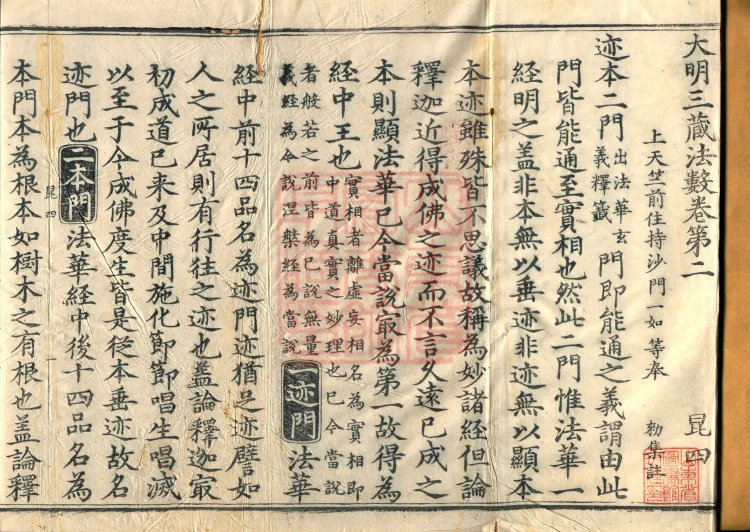 大明三藏法數卷第二　昆四
上天竺前住持沙門一如等奉　勑集註
迹本二門出法華玄義釋籤門即能通之義謂由此
門皆能通至實相也然此二門惟法華一
經明之蓋非本無以垂迹非迹無以顯本
本迹雖殊皆不思議故稱為妙諸經但論
釋迦近得成佛之迹而不言久遠已成之
本則顯法華已今當說㝡為第一故得為
經中王也實相者離虛妄相名為實相即中道真實之妙理也已今當說
者般若之前皆為已說無量義經為今說涅槃經為當說一迹門法華
經中前十四品名為迹門迹猶足迹譬如
人之所居則有行往之迹也蓋論釋迦㝡
初成道已來及中間施化節節唱生唱滅
以至于今成佛度生皆是從本垂迹故名
迹門也二本門法華經中後十四品名為
昆四
本門本為根本如樹木之有根也蓋論釋